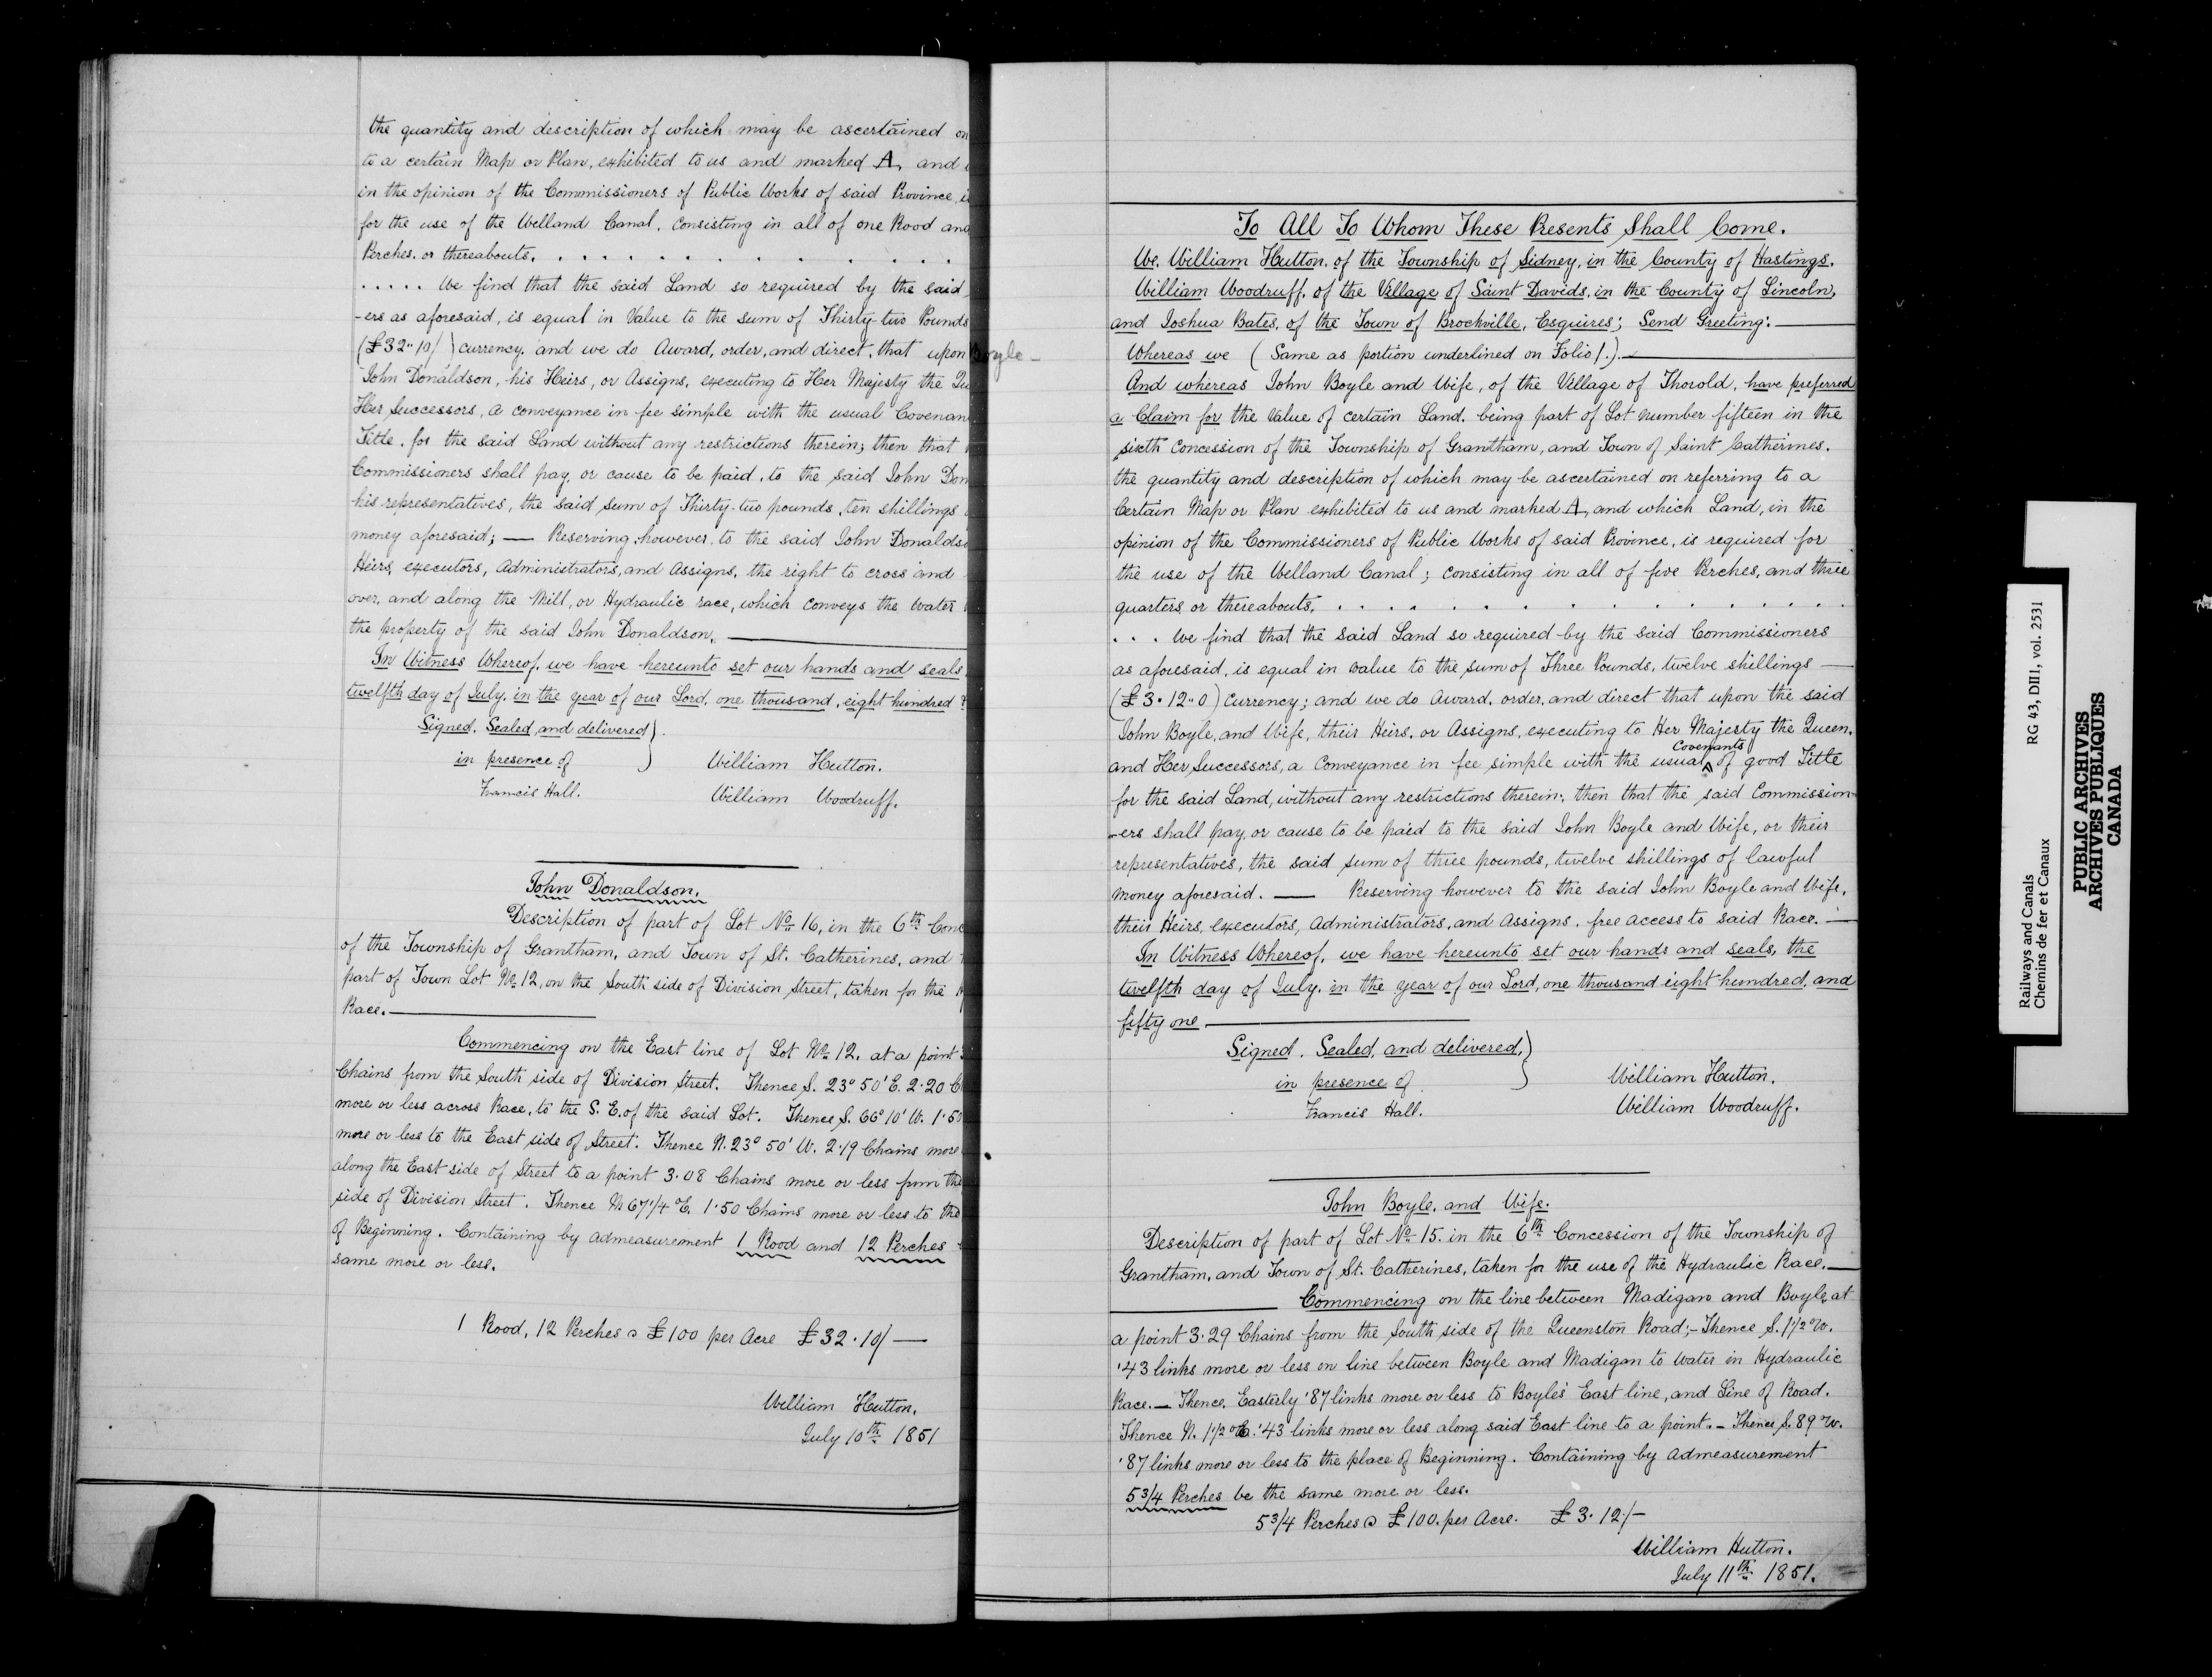 the quantity and description of which may be ascertained on
to a certain Map or Plan, exhibited to us and marked A, and
in the opinion of the Commissioners of Public Works of said Province, i
for the use of the Welland Canal, consisting in all of one Rood and
Perches, or thereabouts. . . . . . . . . . . . . . . .
. . . . . We find that the said Land so required by the said
-ers as aforesaid, is equal in Value to the sum of Thirty-two Pounds
(£32"10/ ) currency. and we do Award, order, and direct, that upon
John Donaldson, his Heirs, or Assigns, executing to Her Majesty the Qu
Her Successors, a conveyance in fee simple with the usual Covenan
Title, for the said Land without any restrictions therein; then that
Commissioners shall pay, or cause to be paid, to the said John Don
his representatives, the said sum of Thirty-two pounds, ten shillings
money aforesaid; — Reserving, however, to the said John Donalds
Heirs, executors, Administrators, and Assigns, the right to cross and
over, and along the Mill, or Hydraulic race, which conveys the Water
the property of the said John Donaldson. —
In Witness Whereof, we have hereunto set our hands and seals
twelfth day of July, in the year of our Lord, one thousand, eight hundred &
Signed, Sealed, and delivered }
in presence of } William Hutton.
Francis Hall. William Woodruff.
John Donaldson.
Description of part of Lot No. 16, in the 6th Conc
of the Township of Grantham, and Town of St. Catherines, and
part of Town Lot No. 12, on the South side of Division Street, taken for the
Race. —
Commencing on the East line of Lot No. 12, at a point
Chains from the South side of Division Street. Thence S. 23° 50' E. 2·20 C
more or less across Race, to the S. E. of the said Lot. Thence S. 66° 10' W. 1·50
more or less to the East side of Street. Thence N. 23° 50' W. 2·19 Chains more
along the East side of Street to a point 3·08 Chains more or less from the
side of Division Street. Thence N 67 1/4 °E. 1·50 Chains more or less to the
of Beginning. Containing by Admeasurement 1 Rood and 12 Perches
same more or less.
1 Rood, 12 Perches @ £100 per Acre £32·10/ —
William Hutton,
July 10th 1851
Boyle —
To All To Whom These Presents Shall Come.
We, William Hutton, of the Township of Sidney, in the County of Hastings.
William Woodruff, of the Village of Saint Davids, in the County of Lincoln,
and Joshua Bates, of the Town of Brockville, Esquires; Send Greeting: —
Whereas we ( Same as portion underlined on Folio 1.). —
And whereas John Boyle and Wife, of the Village of Thorold, have preferred
a Claim for the Value of certain Land, being part of Lot number fifteen in the
sixth Concession of the Township of Grantham, and Town of Saint Catherines.
the quantity and description of which may be ascertained on referring to a
Certain Map or Plan exhibited to us and marked A, and which Land, in the
opinion of the Commissioners of Public Works of said Province, is required for
the use of the Welland Canal; consisting in all of five Perches, and three
quarters, or thereabouts. . . . . . . . . . . . . . . .
. . . We find that the said Land so required by the said Commissioners
as aforesaid, is equal in value to the sum of Three Pounds, twelve shillings —
(£3·12"0) Currency; and we do Award, order, and direct that upon the said
John Boyle, and Wife, their Heirs, or Assigns, executing to Her Majesty the Queen,
and Her Successors, a Conveyance in fee simple with the usual Covenants of good Title
for the said Land, without any restrictions therein; then that the said Commission-
-ers shall pay, or cause to be paid to the said John Boyle and Wife, or their
representatives, the said sum of three pounds, twelve shillings of lawful
money aforesaid. — Reserving however to the said John Boyle and Wife,
their Heirs, executors, Administrators, and Assigns, free access to said Race. —
In Witness Whereof, we have hereunto set our hands and seals, the
twelfth day of July, in the year of our Lord, one thousand eight hundred, and
fifty one —
Signed, Sealed, and delivered, }
in presence of } William Hutton.
Francis Hall. William Woodruff.
John Boyle, and Wife.
Description of part of Lot No. 15. in the 6th Concession of the Township of
Grantham, and Town of St. Catherines, taken for the use of the Hydraulic Race. —
— Commencing on the line between Madigan and Boyle, at
a point 3·29 Chains from the South side of the Queenston Road; – Thence S. 1 1/2 °W.
'43 links more or less on line between Boyle and Madigan to Water in Hydraulic
Race. — Thence Easterly '87 links more or less to Boyle's East line, and Line of Road.
Thence N. 1 1/2 °E. '43 links more or less along said East line to a point. – Thence S. 89 °W.
'87 links more or less to the place of Beginning. Containing by Admeasurement
5 3/4 Perches be the same more or less.
5 3/4 Perches @ £100. per Acre. £3·12·/–
William Hutton.
July 11th 1851.
Railways and Canals RG 43, DII1, vol. 2531
Chemins de fer et Canaux
PUBLIC ARCHIVES
ARCHIVES PUBLIQUES
CANADA